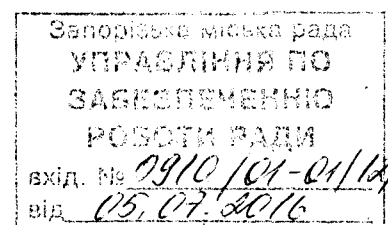 Запорізька міська рада
УПРАВЛІННЯ ПО
ЗАБЕЗПЕЧЕННЮ
РОБОТИ РАДИ
вхід. № 0910/01-01/12
від 05.07.2016